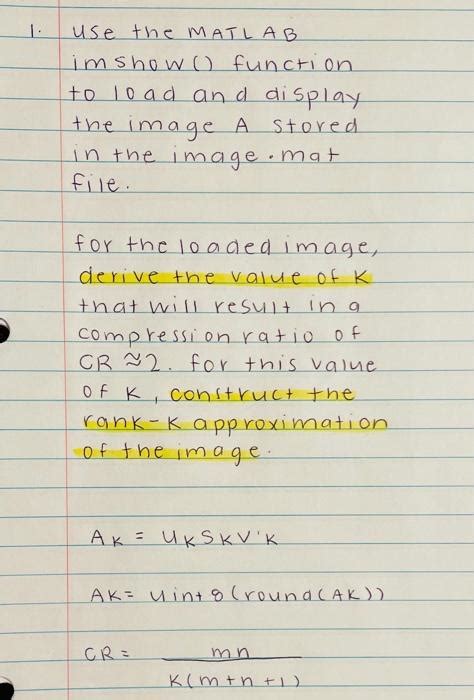 1. Use the MATLAB
imshow() function
to load and display
the image A stored
in the image.mat
file.
for the loaded image,
derive the value of K
that will result in a
compression ratio of
CR ≈ 2. for this value
of K, construct the
rank-K approximation
of the image.
AK = UKSKV'K
AK = uint8(round(AK))
CR = mn
K(m+n+1)